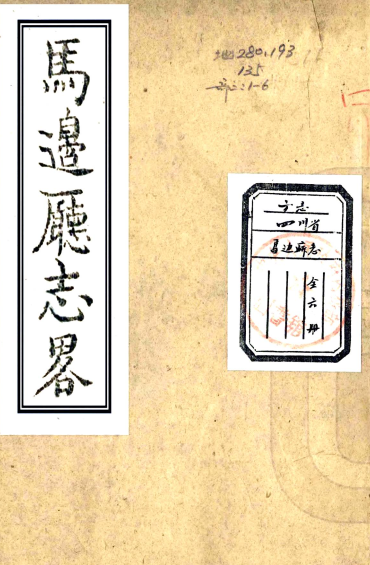 馬邊廳志畧
地280.193
135
部:1-6
方志
四川省
馬边厛志
全六册